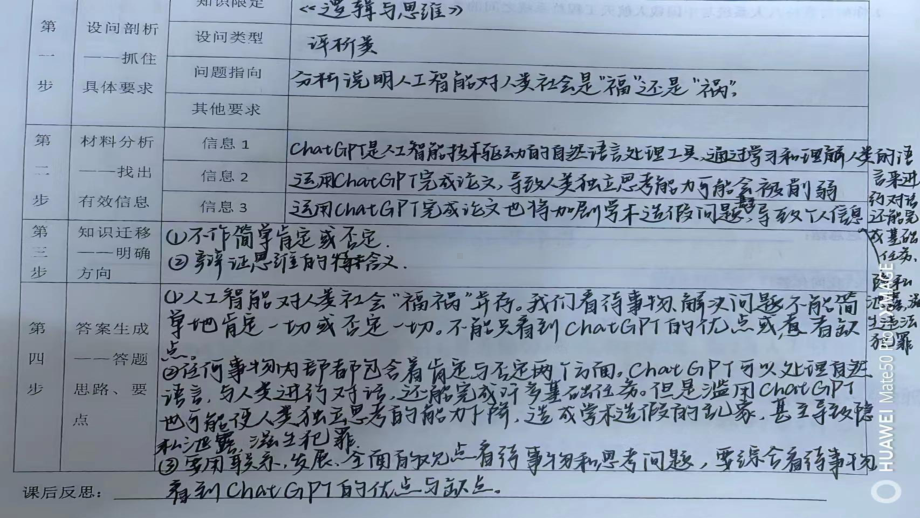 知识限定 《逻辑与思维》
第一步 设问剖析——抓住具体要求
设问类型 评析类
问题指向 分析说明人工智能对人类社会是"福"还是"祸"。
其他要求
第二步 材料分析——找出有效信息
信息1 ChatGPT是人工智能技术驱动的自然语言处理工具,通过学习和理解人类的语
言来进
行对话
还能完
成基础
任务。
信息2 运用ChatGPT完成论文,导致人类独立思考能力可能会被削弱
信息3 运用ChatGPT完成论文也将加剧学术造假问题,导致个人信息
隐私
泄露,滋
生违法
犯罪
第三步 知识迁移——明确方向
①不作简单肯定或否定.
②辩证思维的含义.
第四步 答案生成——答题思路、要点
①人工智能对人类社会"福祸"并存。我们看待事物、解决问题不能简
单地肯定一切或否定一切。不能只看到ChatGPT的优点或只看缺
点。
②任何事物内部都包含着肯定与否定两个方面。ChatGPT可以处理自然
语言,与人类进行对话,还能完成许多基础任务。但是滥用ChatGPT
也可能使人类独立思考的能力下降,造成学术造假的乱象,甚至导致隐
私泄露,滋生犯罪。
③要用联系、发展、全面的观点看待事物和思考问题,要综合看待事物
看到ChatGPT的优点与缺点。
课后反思:
HUAWEI Mate50 RS XMAGE